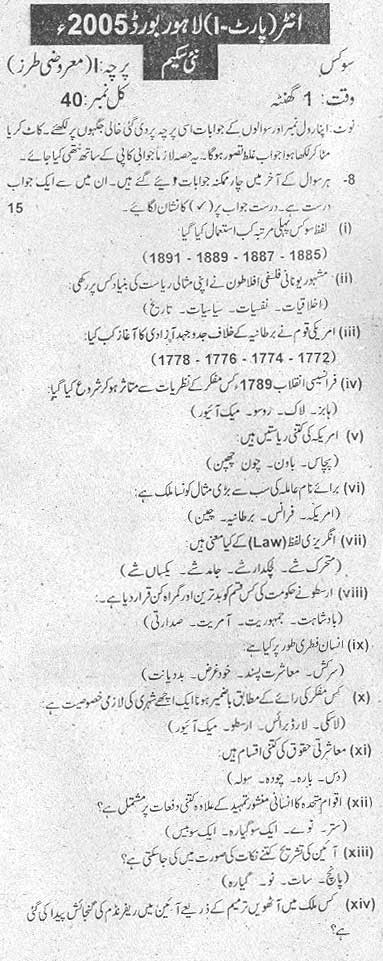 انٹر (پارٹ-I) لاہور بورڈ 2005ء
سوکس نئی سکیم پرچہ: I (معروضی طرز)
وقت: 1 گھنٹہ کل نمبر: 40
نوٹ: اپنا رول نمبر اور سوالوں کے جوابات اسی پرچہ پر دی گئی خالی جگہوں پر لکھئے۔ کاٹ کر یا
مٹا کر لکھا ہوا جواب غلط تصور ہوگا۔ یہ حصہ لازماً جوابی کاپی کے ساتھ نتھی کیا جائے۔
8- ہر سوال کے آخر میں چار ممکنہ جوابات دیئے گئے ہیں۔ ان میں سے ایک جواب
درست ہے۔ درست جواب پر (✓) کا نشان لگائیے۔ 15
(i) لفظ سوکس پہلی مرتبہ کب استعمال کیا گیا:
(1885 - 1887 - 1889 - 1891)
(ii) مشہور یونانی فلسفی افلاطون نے اپنی مثالی ریاست کی بنیاد کس پر رکھی:
(اخلاقیات۔ نفسیات۔ سیاسیات۔ تاریخ)
(iii) امریکی قوم نے برطانیہ کے خلاف جدوجہد آزادی کا آغاز کب کیا:
(1772 - 1774 - 1776 - 1778)
(iv) فرانسیسی انقلاب 1789ء کس مفکر کے نظریات سے متاثر ہو کر شروع کیا گیا:
(ہابز۔ لاک۔ روسو۔ میک آئیور)
(v) امریکہ کی کتنی ریاستیں ہیں:
(پچاس۔ باون۔ چون۔ چھپن)
(vi) برائے نام عاملہ کی سب سے بڑی مثال کونسا ملک ہے:
(امریکہ۔ فرانس۔ برطانیہ۔ چین)
(vii) انگریزی لفظ (Law) کے کیا معنی ہیں:
(متحرک شے۔ لچکدار شے۔ جامد شے۔ یکساں شے)
(viii) ارسطو نے حکومت کی کس قسم کو بدترین اور گمراہ کن قرار دیا ہے:۔
(بادشاہت۔ جمہوریت۔ آمریت۔ صدارتی)
(ix) انسان فطری طور پر کیا ہے:
(سرکش۔ معاشرت پسند۔ خودغرض۔ بددیانت)
(x) کس مفکر کی رائے کے مطابق باضمیر ہونا ایک اچھے شہری کی لازمی خصوصیت ہے:
(لاسکی۔ لارڈ برائس۔ ارسطو۔ میک آئیور)
(xi) معاشرتی حقوق کی کتنی اقسام ہیں:
(دس۔ بارہ۔ چودہ۔ سولہ)
(xii) اقوام متحدہ کا انسانی منشور تمہید کے علاوہ کتنی دفعات پر مشتمل ہے؟
(ستر۔ نوے۔ ایک سو گیارہ۔ ایک سو بیس)
(xiii) آئین کی تشریح کتنے نکات کی صورت میں کی جا سکتی ہے؟
(پانچ۔ سات۔ نو۔ گیارہ)
(xiv) کس ملک میں آٹھویں ترمیم کے ذریعے آئین میں ریفرنڈم کی گنجائش پیدا کی گئی
ہے؟